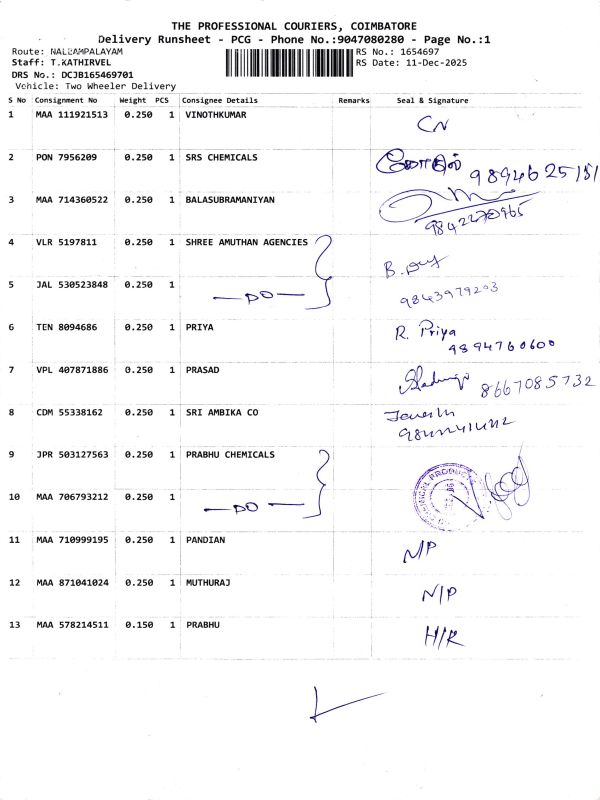 THE PROFESSIONAL COURIERS, COIMBATORE
Delivery Runsheet - PCG - Phone No.:9047080280 - Page No.:1
Route: NALLAMPALAYAM
RS No.: 1654697
Staff: T.KATHIRVEL
RS Date: 11-Dec-2025
DRS No.: DCJB165469701
Vehicle: Two Wheeler Delivery
S No Consignment No Weight PCS Consignee Details Remarks Seal & Signature
1 MAA 111921513 0.250 1 VINOTHKUMAR CN
2 PON 7956209 0.250 1 SRS CHEMICALS 9894625151
3 MAA 714360522 0.250 1 BALASUBRAMANIYAN
9842270965
4 VLR 5197811 0.250 1 SHREE AMUTHAN AGENCIES B.
5 JAL 530523848 0.250 1 —DO— 9843979203
6 TEN 8094686 0.250 1 PRIYA R. Priya
9894760600
7 VPL 407871886 0.250 1 PRASAD 8667085732
8 CDM 55338162 0.250 1 SRI AMBIKA CO
9 JPR 503127563 0.250 1 PRABHU CHEMICALS
10 MAA 706793212 0.250 1 —DO—
11 MAA 710999195 0.250 1 PANDIAN N/P
12 MAA 871041024 0.250 1 MUTHURAJ N/P
13 MAA 578214511 0.150 1 PRABHU H/R